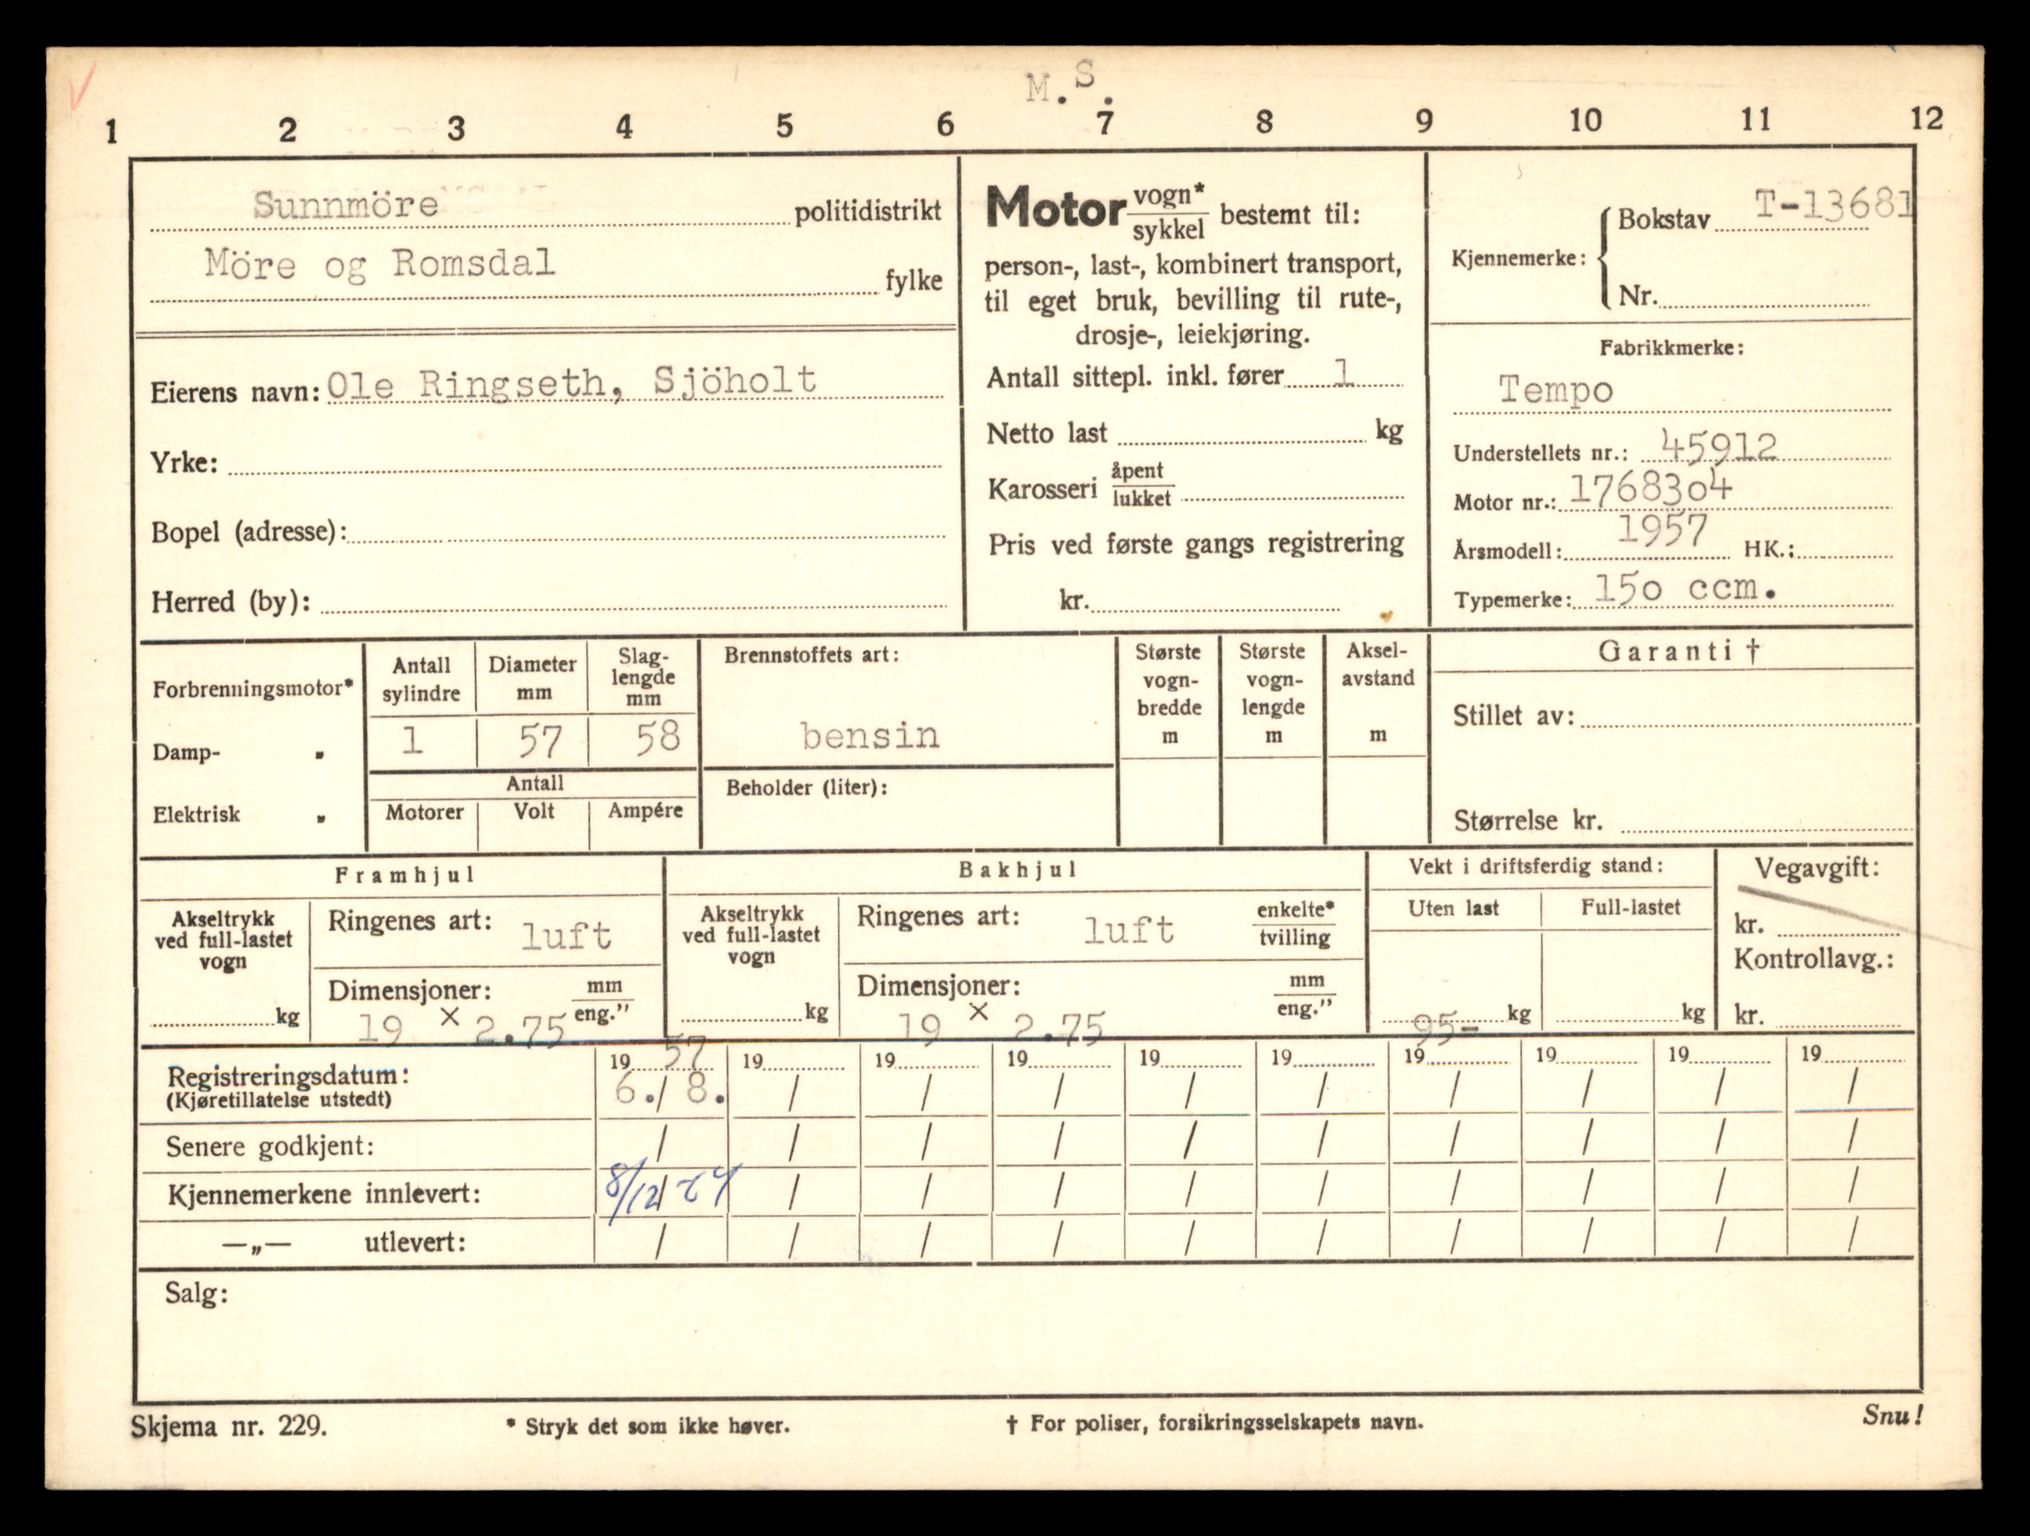 M.S.
1 2 3 4 5 6 7 8 9 10 11 12
Sunnmöre politidistrikt
Möre og Romsdal fylke
Eierens navn: Ole Ringseth, Sjöholt
Yrke:
Bopel (adresse):
Herred (by):
Motor vogn* / sykkel bestemt til:
person-, last-, kombinert transport,
til eget bruk, bevilling til rute-,
drosje-, leiekjøring.
Antall sittepl. inkl. fører 1
Netto last kg
Karosseri åpent / lukket
Pris ved første gangs registrering
kr.
Kjennemerke: Bokstav T-13681
Nr.
Fabrikkmerke:
Tempo
Understellets nr.: 45912
Motor nr.: 1768304
Årsmodell: 1957 HK.:
Typemerke: 150 ccm.
Forbrenningsmotor*
Damp- „
Elektrisk „
Antall sylindre Diameter mm Slag-lengde mm
1 57 58
Antall
Motorer Volt Ampére
Brennstoffets art:
bensin
Beholder (liter):
Største vogn-bredde m
Største vogn-lengde m
Aksel-avstand m
Garanti †
Stillet av:
Størrelse kr.
Framhjul
Akseltrykk ved full-lastet vogn
kg
Ringenes art: luft
Dimensjoner: mm / eng."
19 × 2.75
Bakhjul
Akseltrykk ved full-lastet vogn
kg
Ringenes art: luft enkelte* / tvilling
Dimensjoner: mm / eng."
19 × 2.75
Vekt i driftsferdig stand:
Uten last Full-lastet
95- kg kg
Vegavgift:
kr.
Kontrollavg.:
kr.
19 57 19 19 19 19 19 19 19 19 19
Registreringsdatum: 6. / 8. / / / / / / / / /
(Kjøretillatelse utstedt)
Senere godkjent: / / / / / / / / / /
Kjennemerkene innlevert: 8/12 / / / / / / / / /
—„— utlevert: / / / / / / / / / /
Salg:
Skjema nr. 229.
* Stryk det som ikke høver.
† For poliser, forsikringsselskapets navn.
Snu!